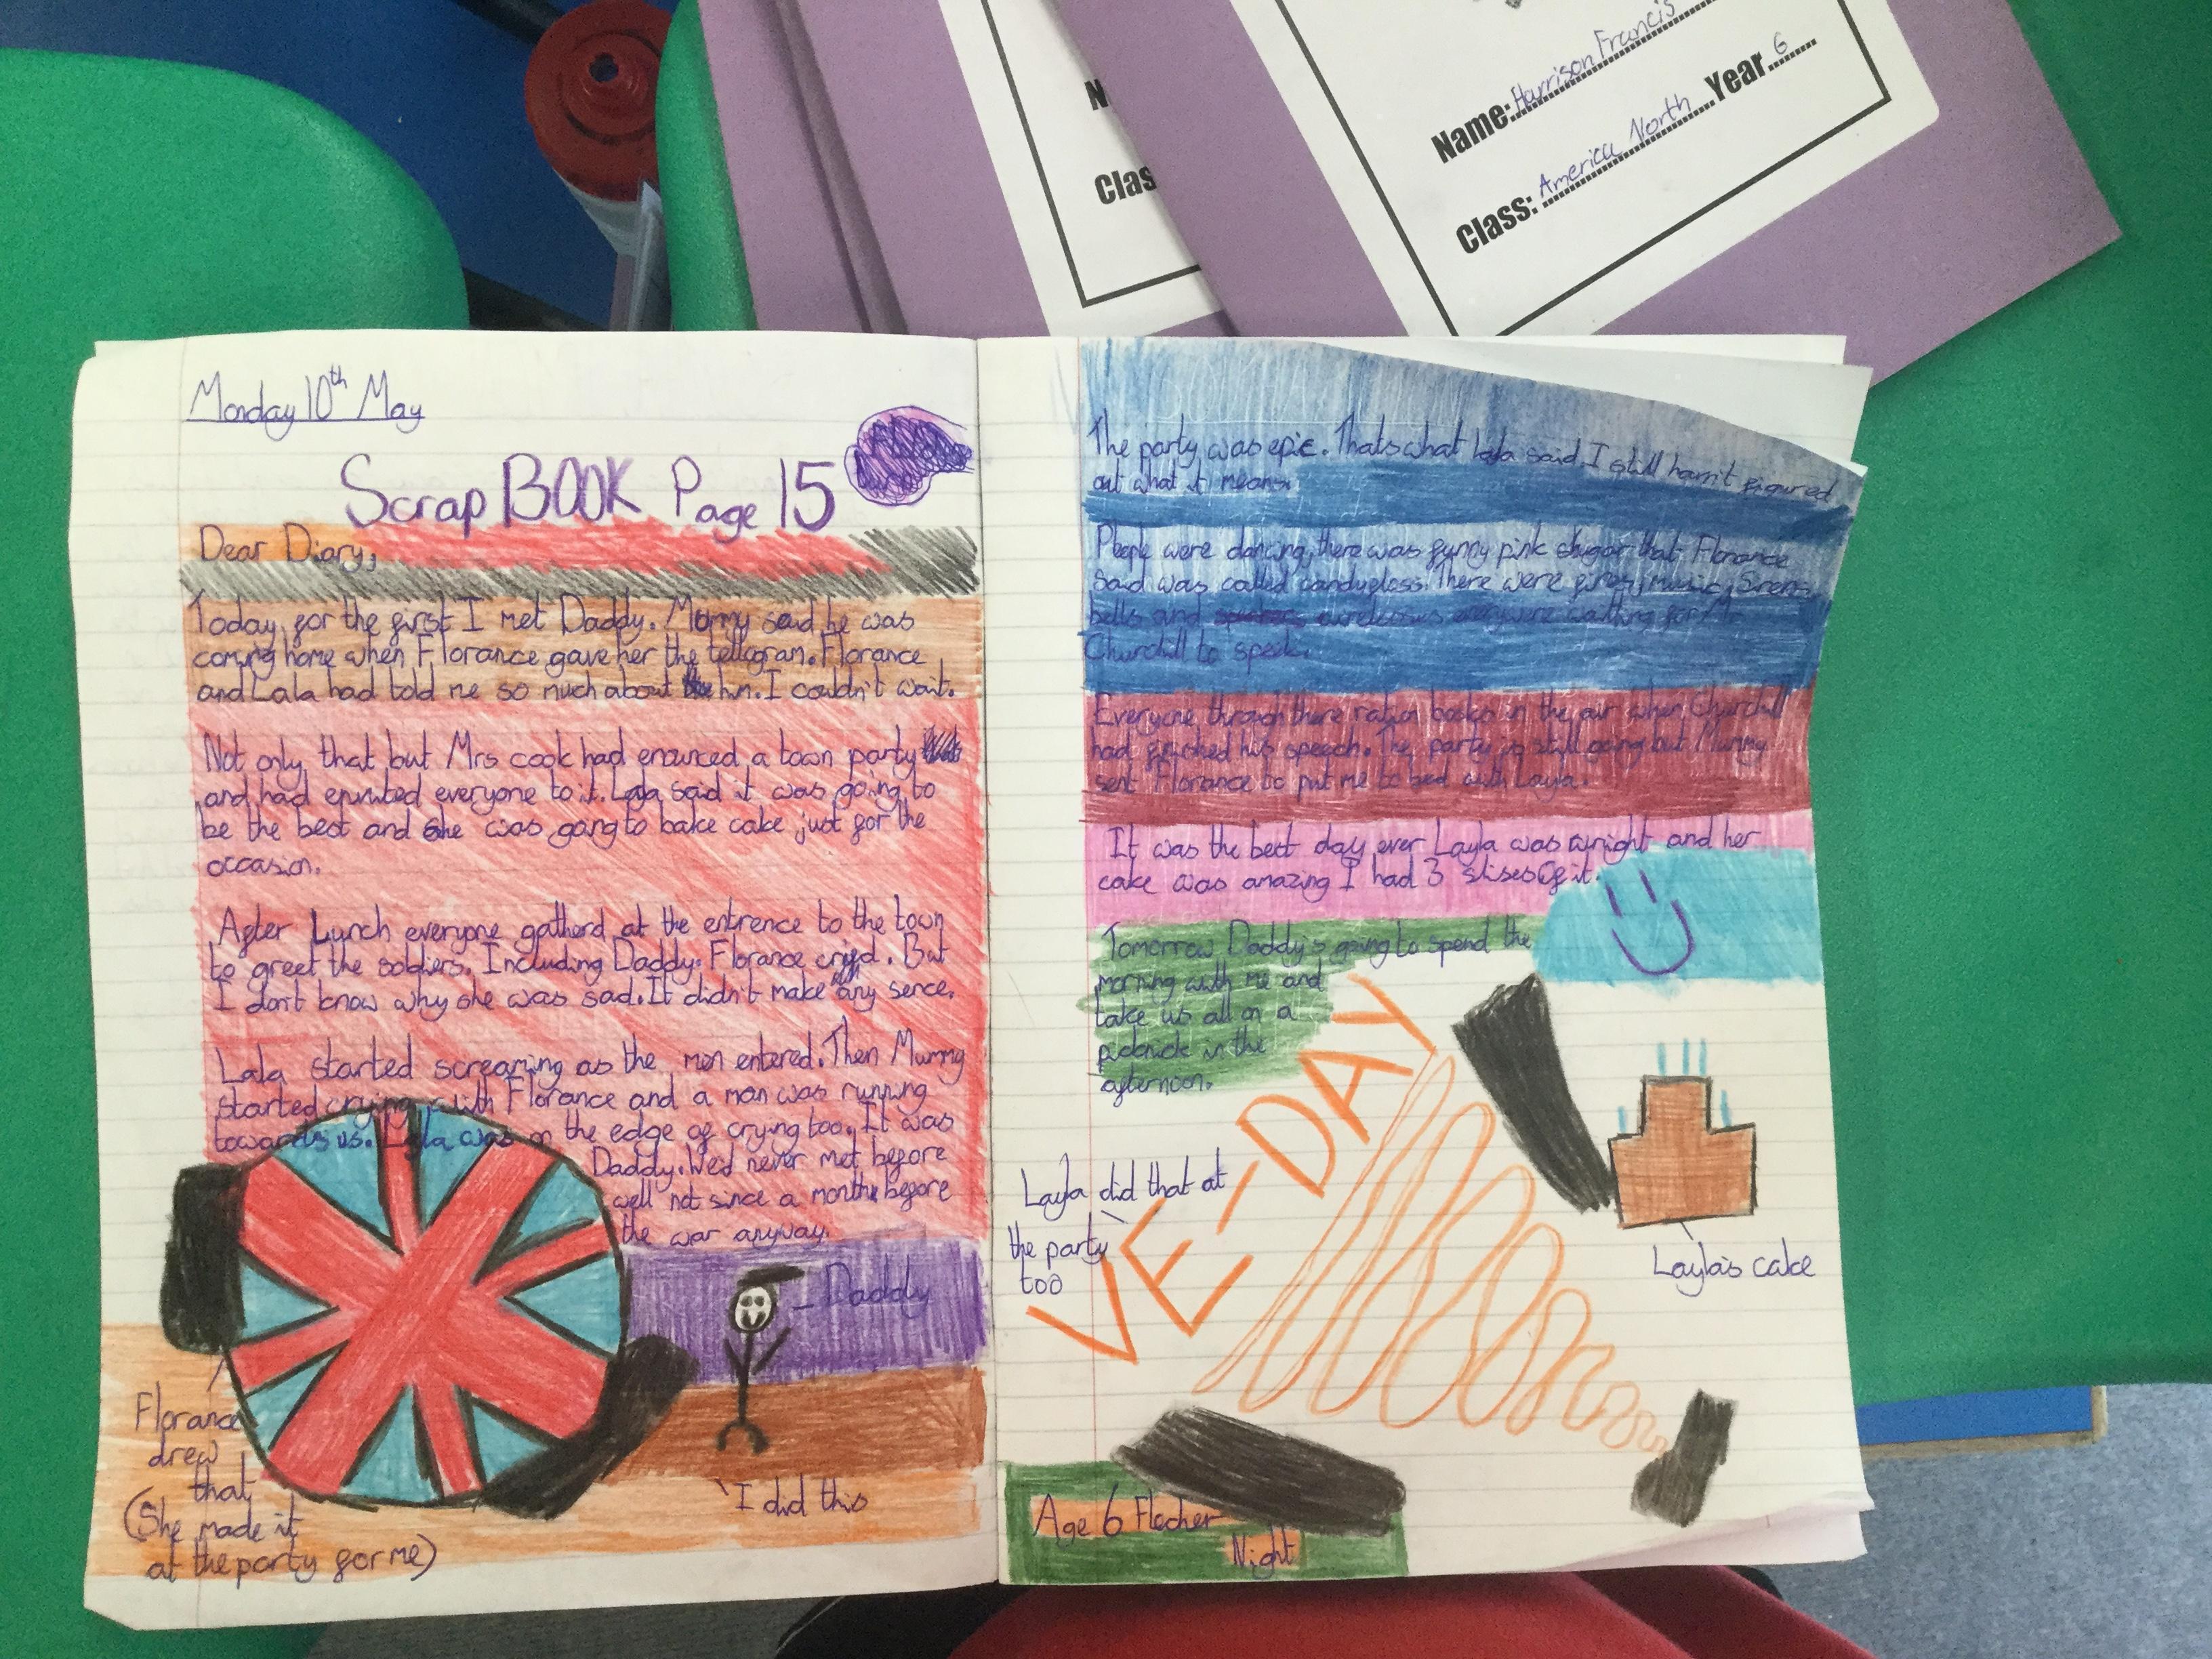 N
Clas
Name: Harrison Francis
Class: America North Year 6
Monday 10th May
Scrap BOOK Page 15
Dear Diary,
Today, for the first I met Daddy. Mummy said he was
coming home when Florance gave her the tellagram. Florance
and Lala had told me so much about him. I couldn't wait.
Not only that but Mrs cook had enounced a town party
and had envited everyone to it. Lala said it was going to
be the best and she was going to bake cake just for the
occasion.
After Lunch everyone gatherd at the entrence to the town
to greet the soldiers. Including Daddy. Florance cried. But
I don't know why she was sad. It didn't make any sence.
Lala started screaming as the men entered. Then Mummy
started crying with Florance and a man was running
towards us. Lala was on the edge of crying too. It was
Daddy. We'd never met before
well not since a month before
the war anyway.
Daddy
Florance
drew
that
(She made it
at the party for me)
I did this
The party was epic. Thats what Lala said. I still havn't figured
out what it means.
People were dancing, there was funny pink shugar that Florance
said was called candygloss. There were fires, music, Sirens,
bells and everyone waiting for Mr
Churchill to speak.
Everyone through there ration books in the air when Churchill
had finished his speech. The party is still going but Mummy
sent Florance to put me to bed with Layla.
It was the best day ever Layla was wright and her
cake was amazing I had 3 slises of it.
Tomorrow Daddy's going to spend the
morning with me and
take us all on a
picknick in the
afternoon.
VE-DAY
Layla did that at
the party
too
Layla's cake
Age 6 Flecher
Night